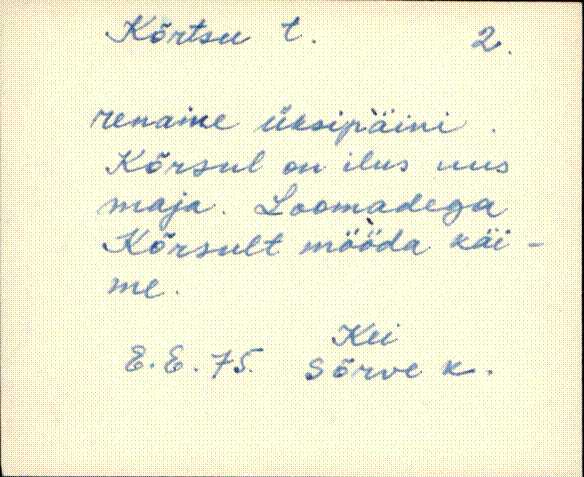 Kõrtsu t. 2.
renaine üksipäini.
Kõrsul on ilus uus
maja. Loomadega
Kõrsult mööda käi-
me.
Kei
E.E.75. Sõrve k.